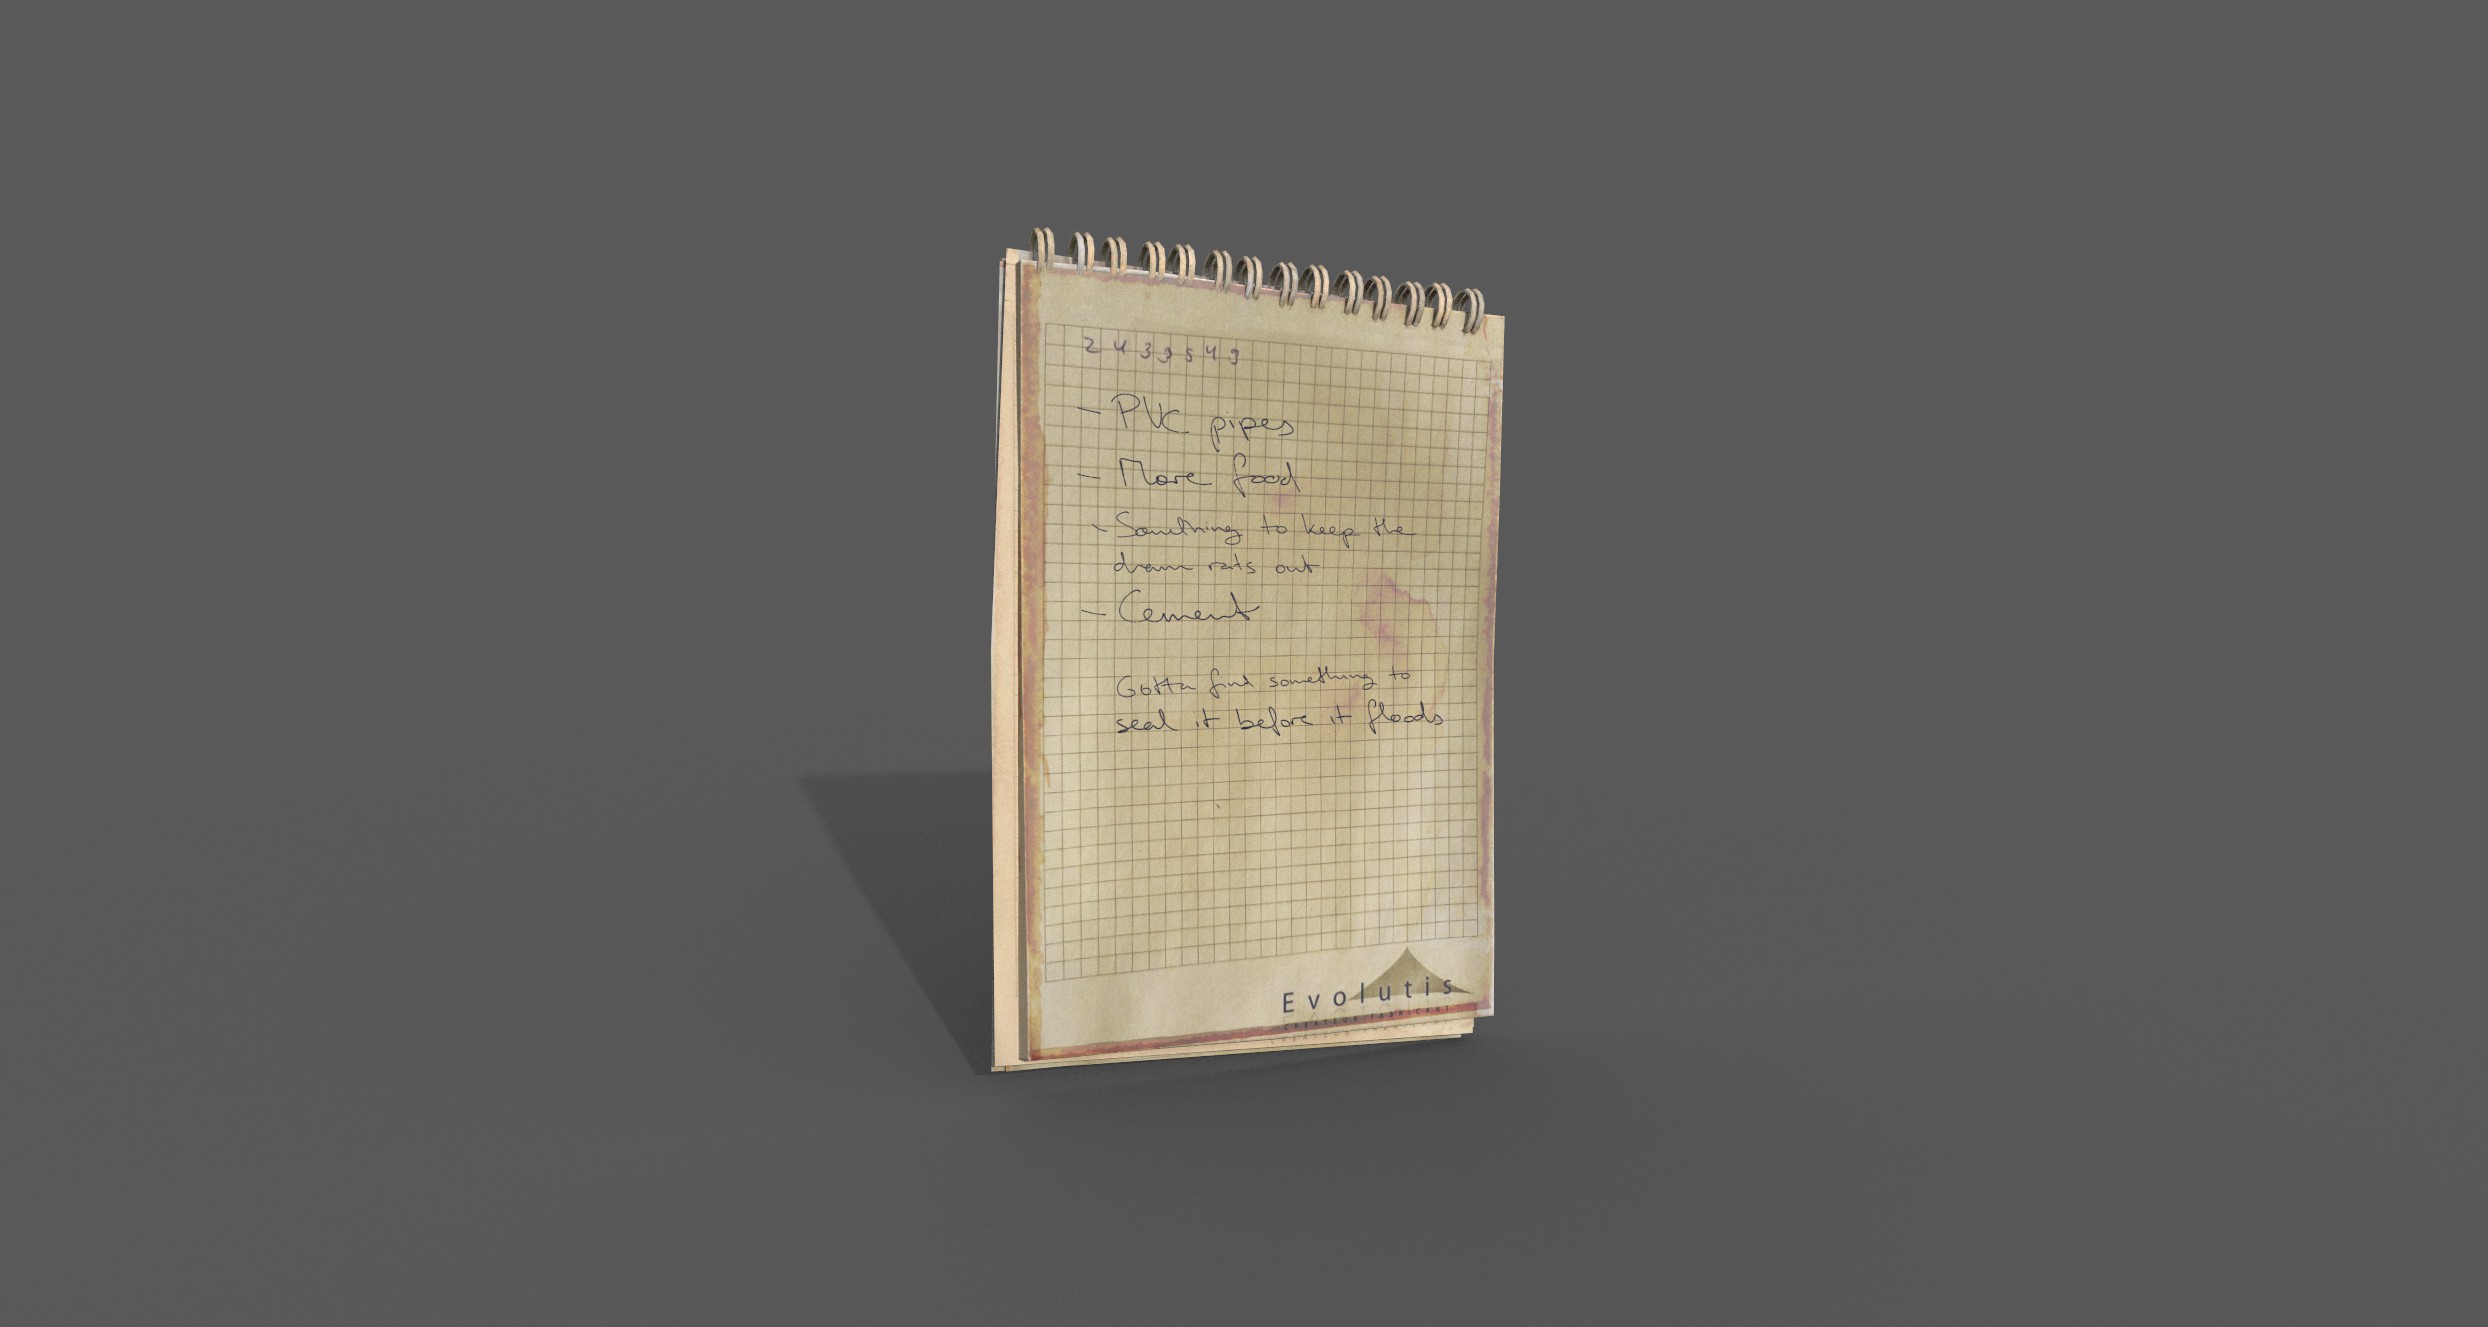 2439549
- PVC pipes
- More food
- Something to keep the
drain rats out
- Cement
Gotta find something to
seal it before it floods
Evolutis
CREATEUR FABRICANT